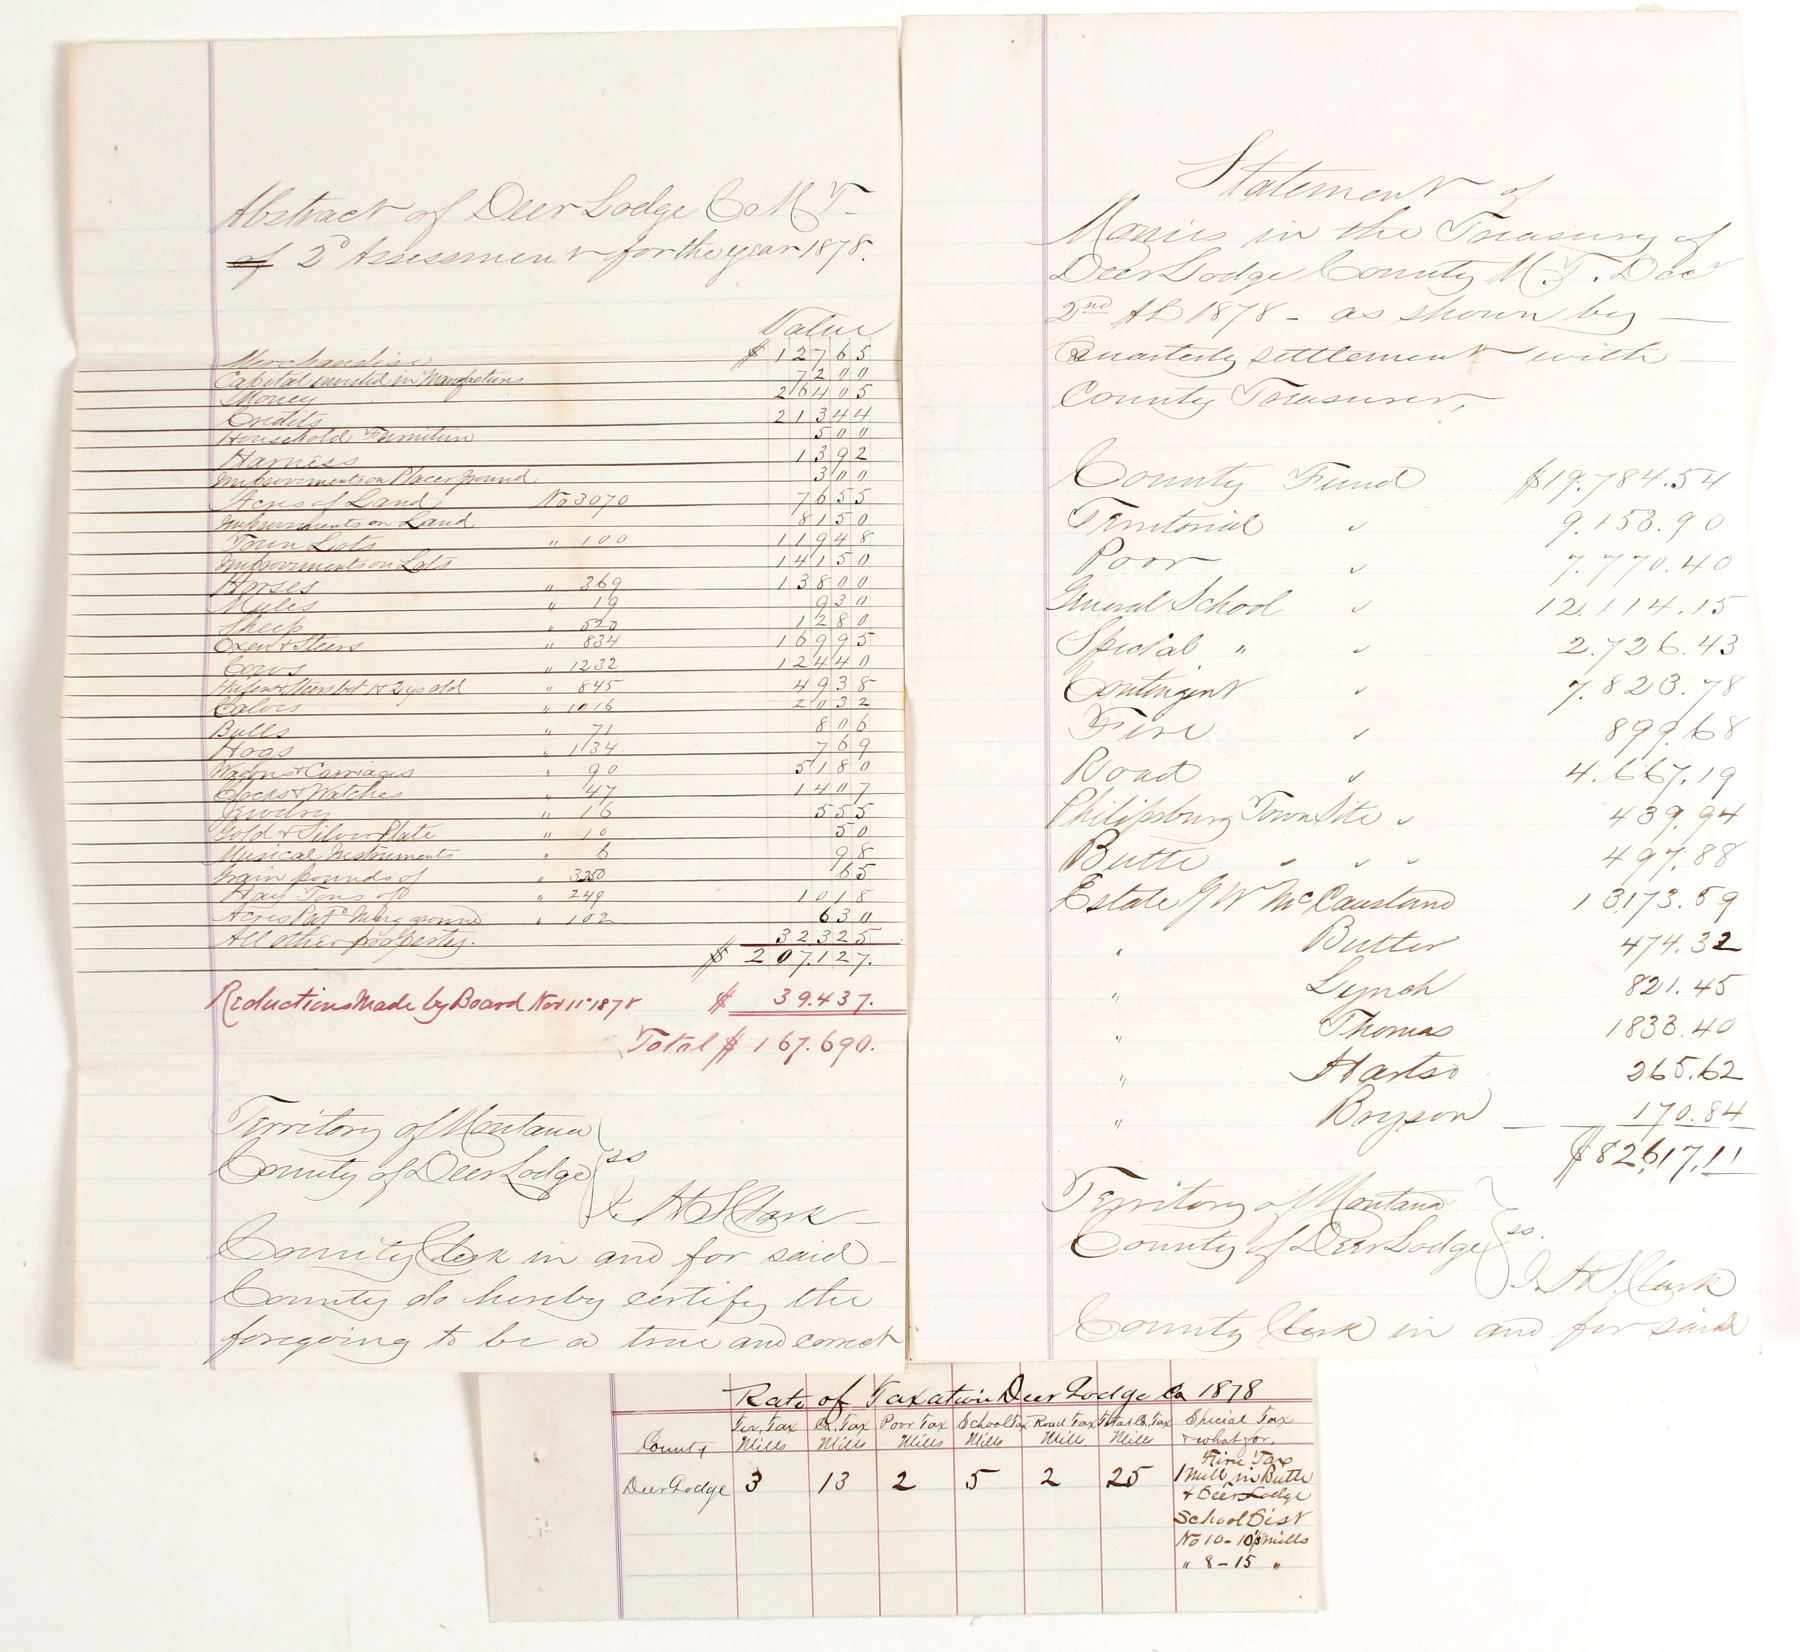 Abstract of Deer Lodge Co M T-
of 2d Assessment for the year 1878.
Value
Merchandise $12765
Capital invested in Manufactures 7200
Money 26405
Credits 21344
Household Furniture 500
Harness 1392
Improvements on Placer ground 300
Acres of Land No 3070 7655
Improvements on Land 8150
Town Lots " 100 11948
Improvements on Lots 14150
Horses " 369 13800
Mules " 19 930
Sheep " 520 1280
Oxen & Steers " 834 16995
Cows " 1232 12440
Heifers & Steers bet 1 & 2 yrs old " 845 4938
Calves " 1016 2032
Bulls " 71 806
Hogs " 134 769
Wagons & Carriages " 90 5180
Clocks & Watches " 47 1407
Jewelry " 16 555
Gold & Silver Plate " 10 50
Musical Instruments " 6 98
Grain pounds of " 3250 65
Hay Tons of " 249 1018
Acres Patd Ming ground " 102 630
All other property. 32325
$207.127.
Reductions Made by Board Nov 11" 1878 $39.437.
Total $167.690.
Territory of Montana
County of Deer Lodge } ss
I H S Clark -
County Clerk in and for said -
County do hereby certify the
foregoing to be a true and correct
Statement of
Monies in the Treasury of
Deer Lodge County M.T. Decr
2nd AD 1878 - as shown by -
Quarterly settlement with -
County Treasurer,
County Fund $19.784.54
Territorial " 9.153.90
Poor " 7.770.40
General School " 12.114.15
Special " " 2.726.43
Contingent " 7.823.78
Fire " 899.68
Road " 4.667.19
Philipsburg Town Site " 439.94
Butte " " " 497.88
Estate G W McCausland 13173.59
" Butler 474.32
" Lynch 821.45
" Thomas 1833.40
" Hartso 265.62
" Bryson - 170.84
$82617.11
Territory of Montana
County of Deer Lodge } ss.
I H S. Clark
County Clerk in and for said
Rate of Taxation Deer Lodge Co 1878
County Ter. Tax Mills Co. Tax Mills Poor Tax Mills School Tax Mills Road Tax Mill Total Co. Tax Mill Special Tax & what for.
Deer Lodge 3 13 2 5 2 25 Fire Tax
1 Mill in Butte
& Deer Lodge
School Dist
No 10 - 10 1/3 mills
" 8 - 15 "